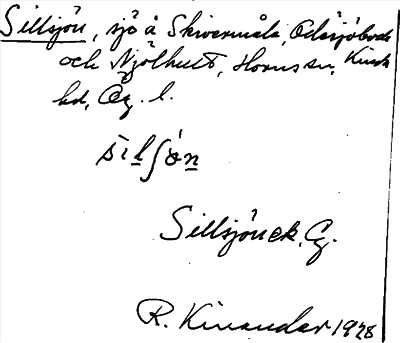 Sillsjön, sjö å Skivermåla, Odensjöbodo
och Mjölhult, Horns sn, Kinda
hd, Ög. l.
silʃön
Sillsjön ek. Ög.
R. Kinander 1928